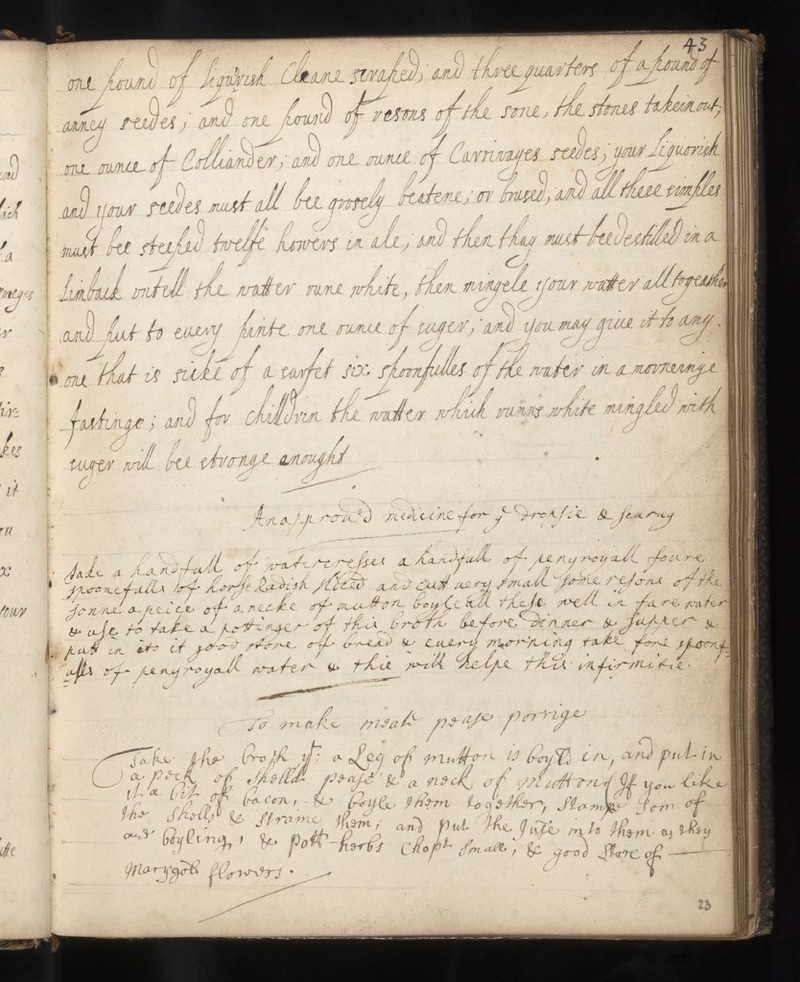 43
one pound of liqurish Cleane scraped, and three quarters of a pound of
anney seedes; and one pound of resons of the sone, the stones takein out,
one ounce of Colliander; and one ounce of Carrwayes seedes; your Liquorish
and your seedes must all bee grosely beatene, or brused, and all these simples
must bee steeped twelfe howers in ale, and then thay must bee destilled in a
Limback untell the watter rune white, then mingele your watter all togeather
and put to euery pinte one ounce of suger, and you may giue it to any
one that is sicke of a surfet six spoonfulles of the water in a morneinge
fastinge; and for childrin the watter which runns white mingled with
suger will bee stronge enought
An approued medicine for ye dropsie & scuruy
Take a handfull of watercresses a handfull of penyroyall foure
spoonefulls of horse Radish sliced and cutt uery small some resons of the
sonne a peice of a necke of mutton boyle all these well in fare water
& use to take a pottinger of this broth before dinner & supper &
putt in ito it good store of bread & euery morning take fore spoonf=
ulls of penyroyall water & this will helpe this infirmitie.
To make meate pease porrige
Take the broth yt: a Leg of mutton is boyld in, and put in
a peck of shelld pease & a neck of mutton (If you like
it a bit of bacon, & boyle them together, stampe som of
the shells & straine them, and put the Juse into them as they
are boyling, & pott-herbs chopt small, & good store of
Marygold flowers.
23